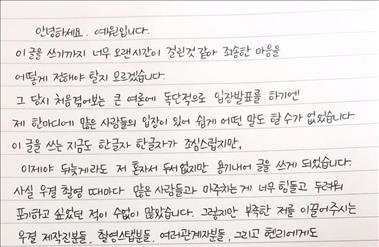 안녕하세요. 예원입니다.
이 글을 쓰기까지 너무 오랜시간이 걸린것 같아 죄송한 마음을
어떻게 전해야 할지 모르겠습니다.
그 당시 처음겪어보는 큰 여론에 독단적으로 입장발표를 하기엔
제 한마디에 많은 사람들의 입장이 있어 쉽게 어떤 말도 할 수가 없었습니다.
이 글을 쓰는 지금도 한글자 한글자가 조심스럽지만,
이제야 뒤늦게라도 저 혼자서 두서없지만 용기내어 글을 쓰게 되었습니다.
사실 우결 촬영 때마다 많은 사람들과 마주치는게 너무 힘들고 두려워
포기하고 싶었던 적이 수없이 많았습니다. 그렇지만 부족한 저를 이끌어주시는
우결 제작진분들, 촬영스탭분들, 여러관계자분들, 그리고 헨리에게도